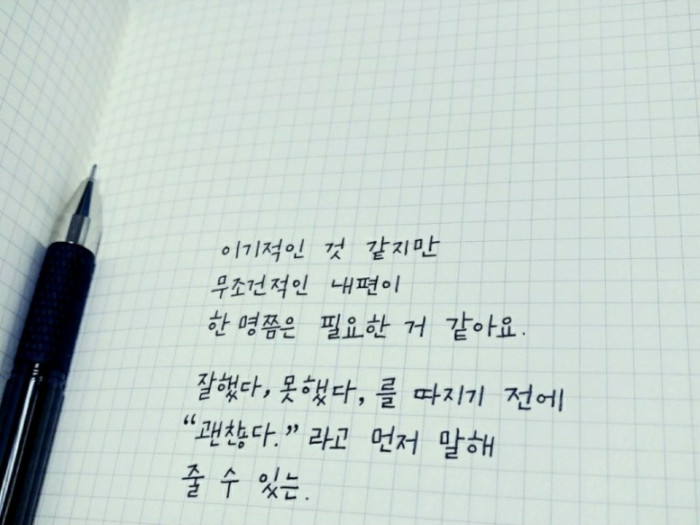 이기적인 것 같지만
무조건적인 내편이
한 명쯤은 필요한 거 같아요.
잘했다, 못했다, 를 따지기 전에
“괜찮다.” 라고 먼저 말해
줄 수 있는.